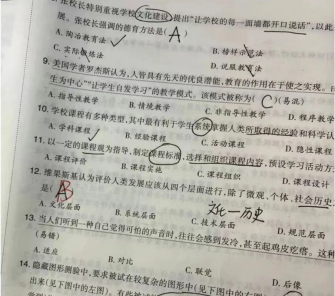 张校长特别重视学校文化建设,提出“让学校的每一面墙都开口说话”,以此
展。张校长强调的德育方法是( A )
A. 陶冶教育法 B. 榜样示范法
C. 实际锻炼法 D. 说服教育法
9. 美国学者罗杰斯认为,人皆具有先天的优良潜能,教育的作用在于使之实现。
生为中心”“让学生自发学习”的教学模式。该模式被称为( C )(易混)
A. 指导性教学 B. 情境教学 C. 非指导性教学 D. 程序教学
10. 学校课程有多种类型,其中最有利于学生系统掌握人类所取得的经验和科学认
A. 学科课程 B. 经验课程 C. 活动课程 D. 隐性课程
11. 以一定的课程观为指导,制定课程标准,选择和组织课程内容,预设学习活动方
A. 课程评价 B. 课程实施 C. 课程组织 D. 课程设计
12. 维果斯基认为评价人类发展应该从四个层面进行,除了微观、个体、社会历史
是( B
A. 文化层面 B. 系统层面 C. 技术层面 D. 规范层面
文化—历史
13. 当人们听到一种自己觉得可怕的声音时,往往会感到发冷,甚至起鸡皮疙瘩。这种
(易错)
A. 适应 B. 对比 C. 联觉 D. 后像
14. 隐蔽图形测验中,要求被试在较复杂的图形中(见下图中的右图)
出来(见下图中的左图)。